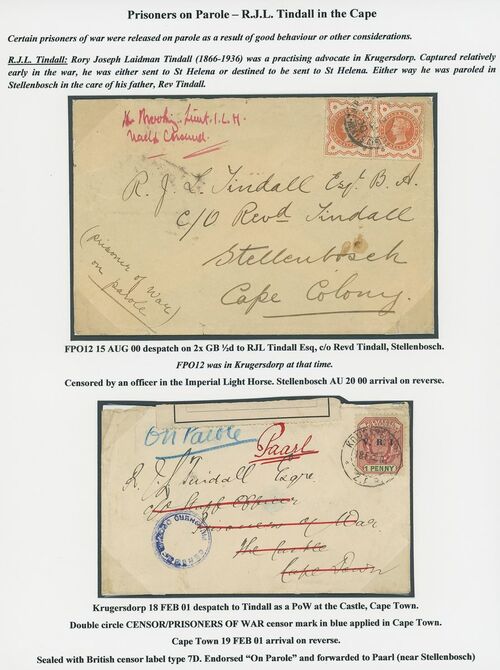 Prisoners on Parole – R.J.L. Tindall in the Cape
Certain prisoners of war were released on parole as a result of good behaviour or other considerations.
R.J.L. Tindall: Rory Joseph Laidman Tindall (1866-1936) was a practising advocate in Krugersdorp. Captured relatively
early in the war, he was either sent to St Helena or destined to be sent to St Helena. Either way he was paroled in
Stellenbosch in the care of his father, Rev Tindall.
Lieut. I.L.H.
R. J. L. Tindall Esqr. B.A.
c/o Revd Tindall
Stellenbosch
Cape Colony.
(prisoner of War
on parole)
FPO12 15 AUG 00 despatch on 2x GB ½d to RJL Tindall Esq, c/o Revd Tindall, Stellenbosch.
FPO12 was in Krugersdorp at that time.
Censored by an officer in the Imperial Light Horse. Stellenbosch AU 20 00 arrival on reverse.
On Parole
Paarl
V.R.I.
1 PENNY
R. J. L. Tindall Esqre
c/o Staff Officer
Prisoners of War
The Castle
Cape Town
Krugersdorp 18 FEB 01 despatch to Tindall as a PoW at the Castle, Cape Town.
Double circle CENSOR/PRISONERS OF WAR censor mark in blue applied in Cape Town.
Cape Town 19 FEB 01 arrival on reverse.
Sealed with British censor label type 7D. Endorsed “On Parole” and forwarded to Paarl (near Stellenbosch)